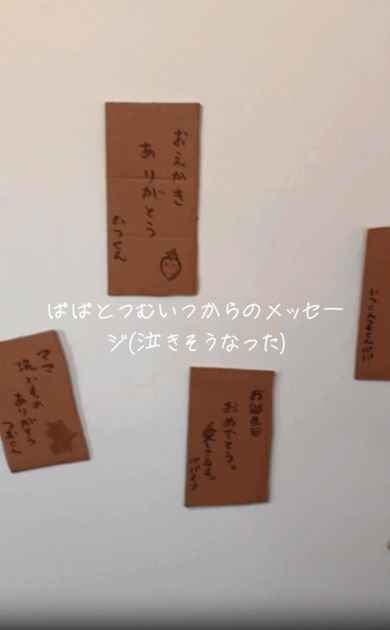 おえかき
ありがとう
ぱぱとつむいつからのメッセー
ジ(泣きそうなった)
ママ
洗いもの
ありがとう
お誕生日
おめでとう。
愛してるよ。